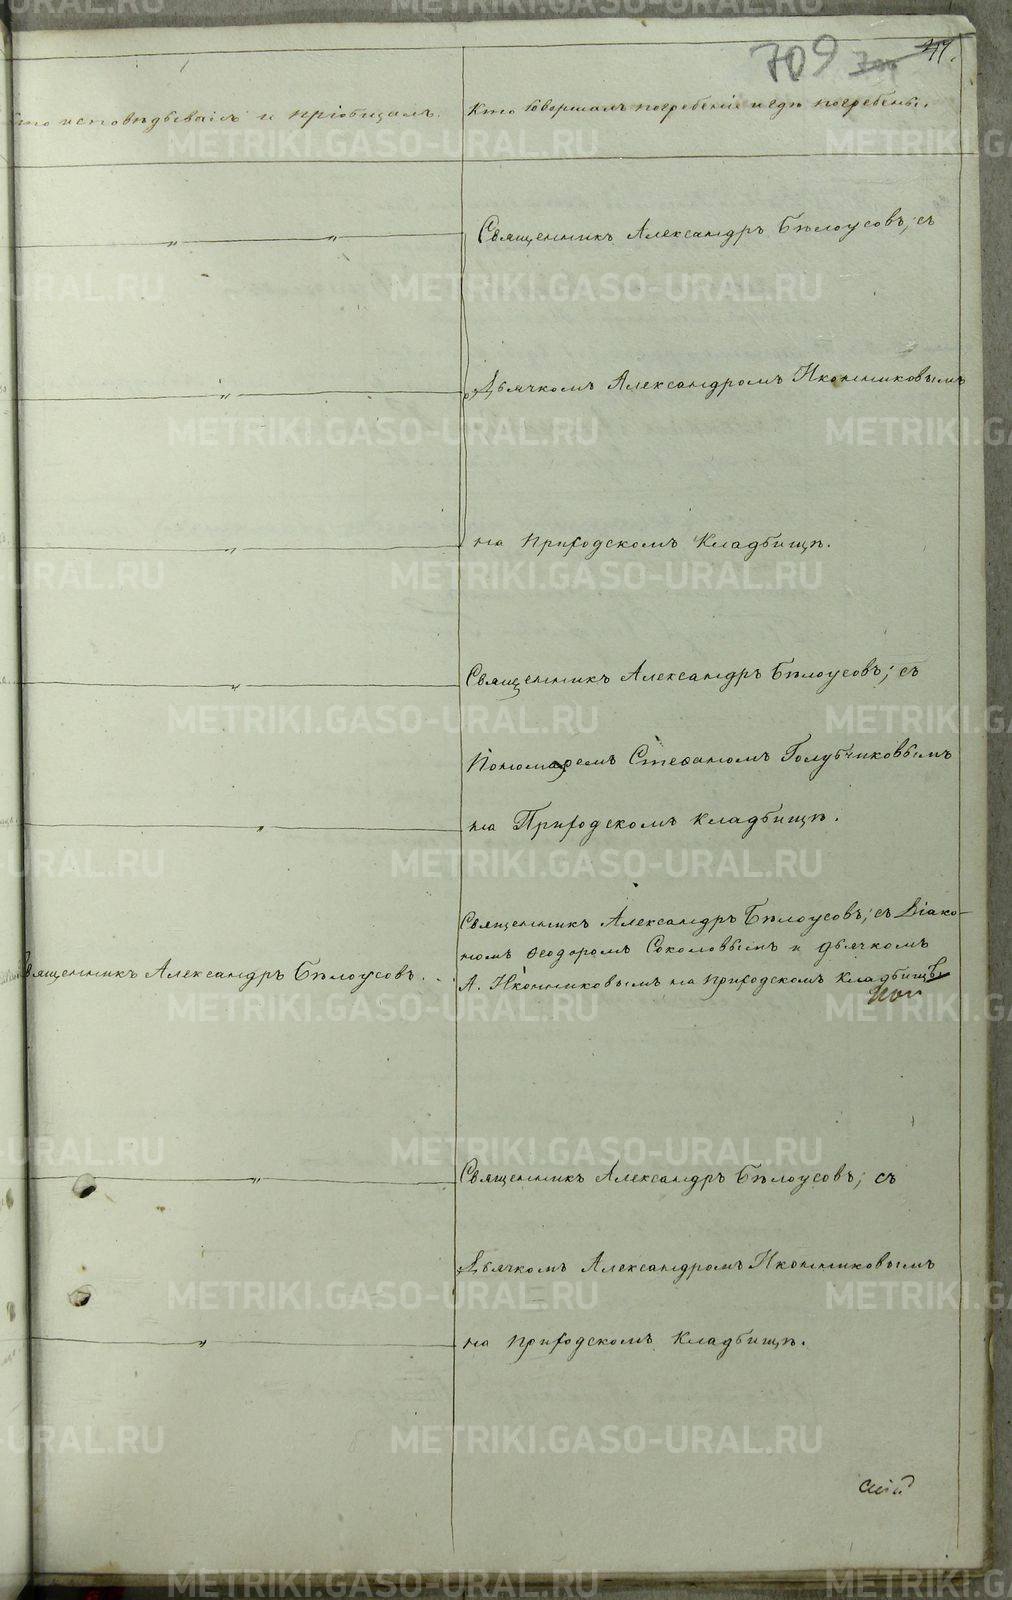 709 47.
Кто исповѣдывалъ и пріобщалъ.
Кто совершалъ погребеніе и гдѣ погребены.
Священникъ Александръ Бѣлоусовъ; съ
Дьячкомъ Александромъ Иконниковымъ
на Приходскомъ Кладбищѣ.
Священникъ Александръ Бѣлоусовъ; съ
Пономаремъ Стефаномъ Голубчиковымъ
на Приходскомъ кладбищѣ.
Священникъ Александръ Бѣлоусовъ.
Священникъ Александръ Бѣлоусовъ; съ Діако-
номъ Ѳеодоромъ Соколовымъ и дьячкомъ
А. Иконниковымъ на Приходскомъ Кладбищѣ
Священникъ Александръ Бѣлоусовъ; съ
Дьячкомъ Александромъ Иконниковымъ
на Приходскомъ Кладбищѣ.
METRIKI.GASO-URAL.RU